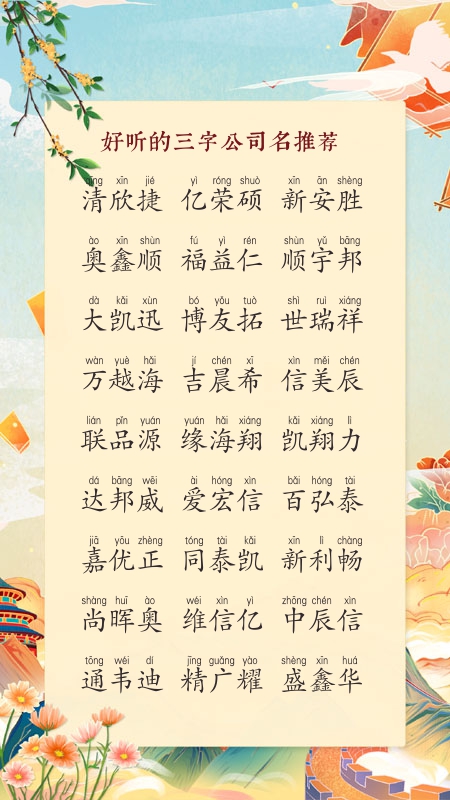 好听的三字公司名推荐
qīng xīn jié yì róng shuò xīn ān shèng
清欣捷 亿荣硕 新安胜
ào xīn shùn fú yì rén shùn yǔ bāng
奥鑫顺 福益仁 顺宇邦
dà kǎi xùn bó yǒu tuò shì ruì xiáng
大凯迅 博友拓 世瑞祥
wàn yuè hǎi jí chén xī xìn měi chén
万越海 吉晨希 信美辰
lián pǐn yuán yuán hǎi xiáng kǎi xiáng lì
联品源 缘海翔 凯翔力
dá bāng wēi ài hóng xìn bǎi hóng tài
达邦威 爱宏信 百弘泰
jiā yōu zhèng tóng tài kǎi xīn lì chàng
嘉优正 同泰凯 新利畅
shàng huī ào wéi xìn yì zhōng chén xìn
尚晖奥 维信亿 中辰信
tōng wéi dí jīng guǎng yào shèng xīn huá
通韦迪 精广耀 盛鑫华